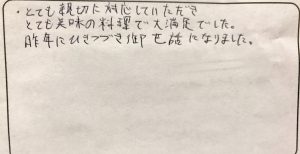 ・とても親切に対応していただき
とても美味の料理で大満足でした。
昨年にひきつづき御世話になりました。